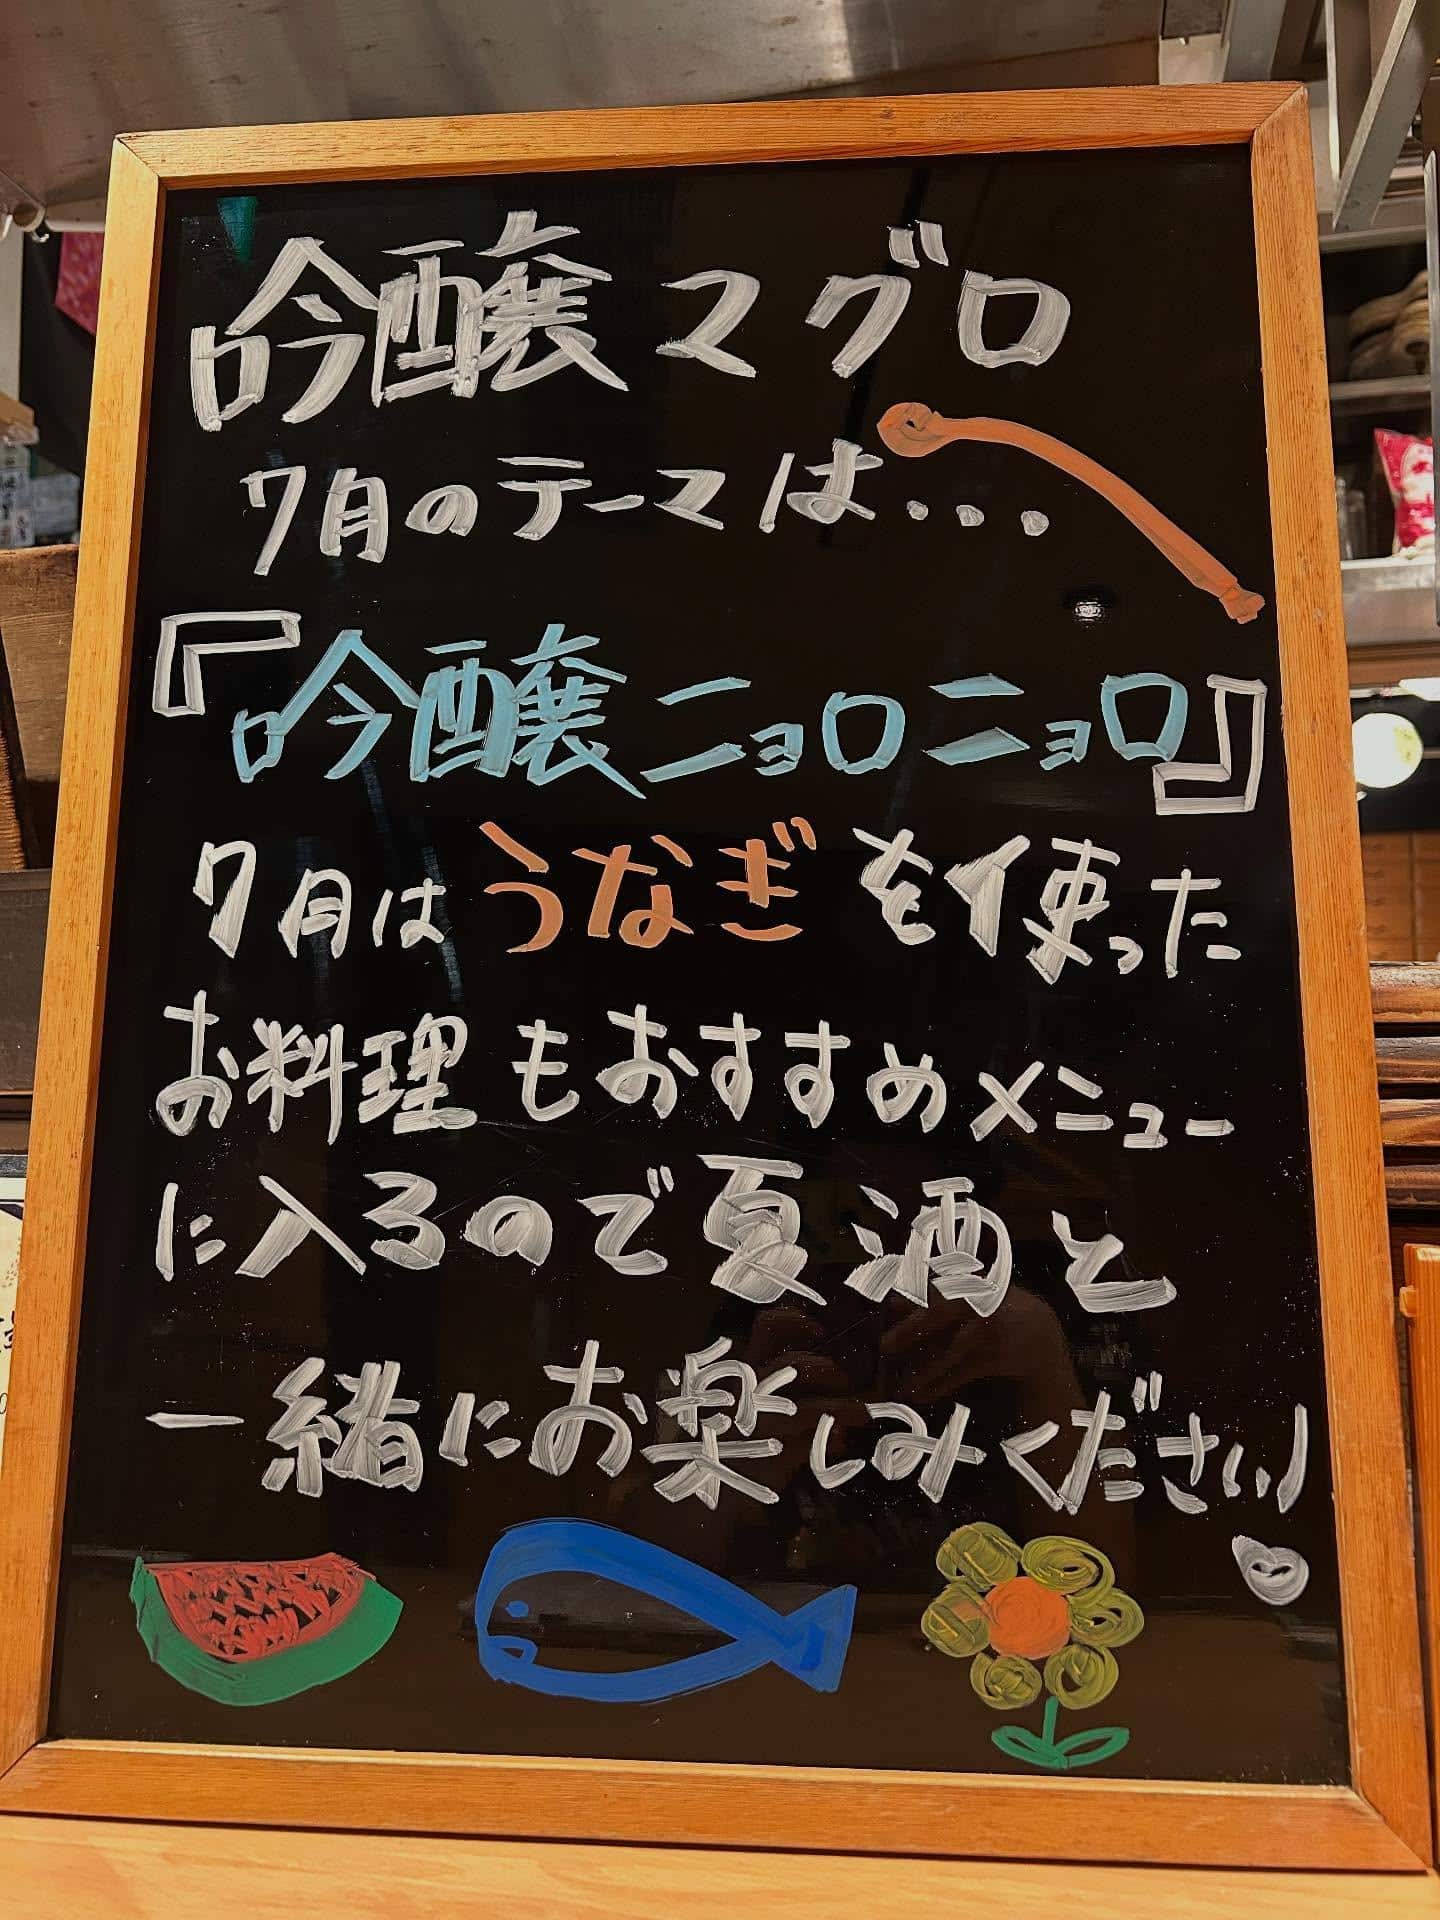 吟醸マグロ
7月のテーマは...
『吟醸ニョロニョロ』
7月はうなぎを使った
お料理もおすすめメニュー
に入るので夏酒と
一緒にお楽しみください♡